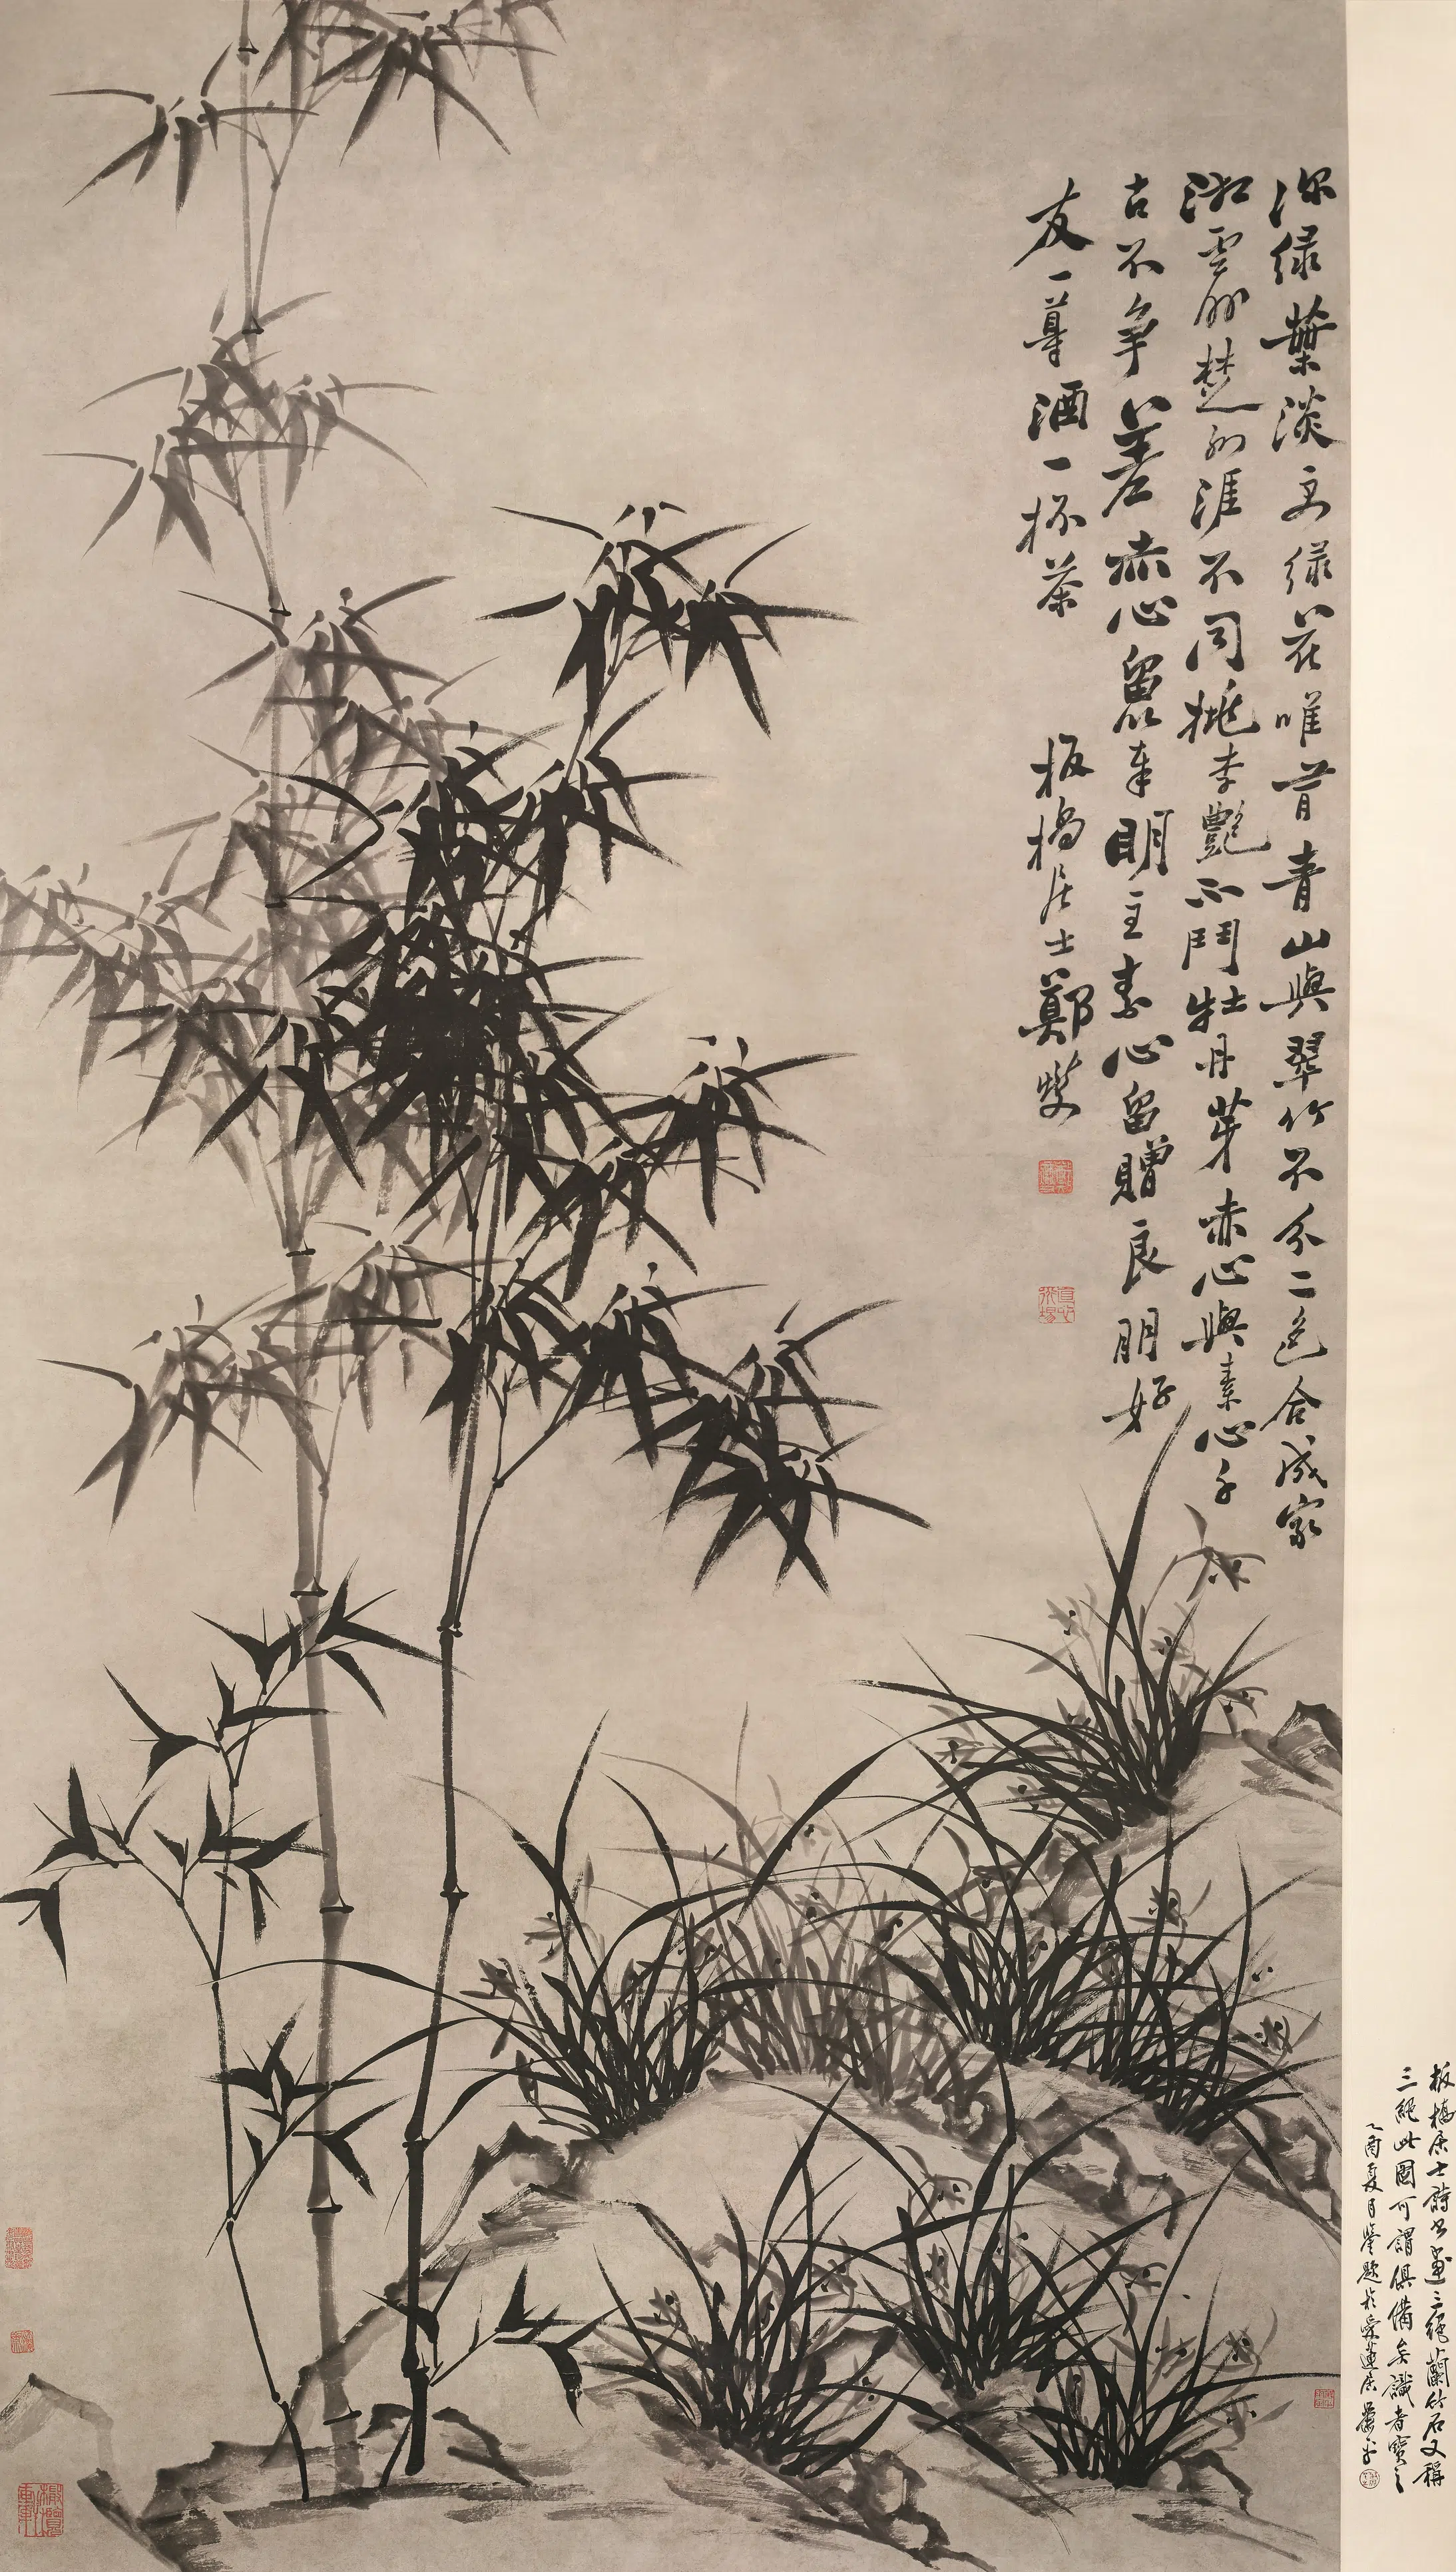 板橋居士詩書畫三絕蘭竹石又稱
三絕此圖可謂俱備矣識者寶之
乙酉夏月鑒題於愛蓮居蕭平
深綠葉淡綠花唯青山與翠竹不分二色合成家
湘雲楚涯不同桃李艷不鬥牡丹芽赤心與素心千
古不争差赤心留奉明主素心留贈良朋好
友一尊酒一杯茶 板橋居士鄭燮